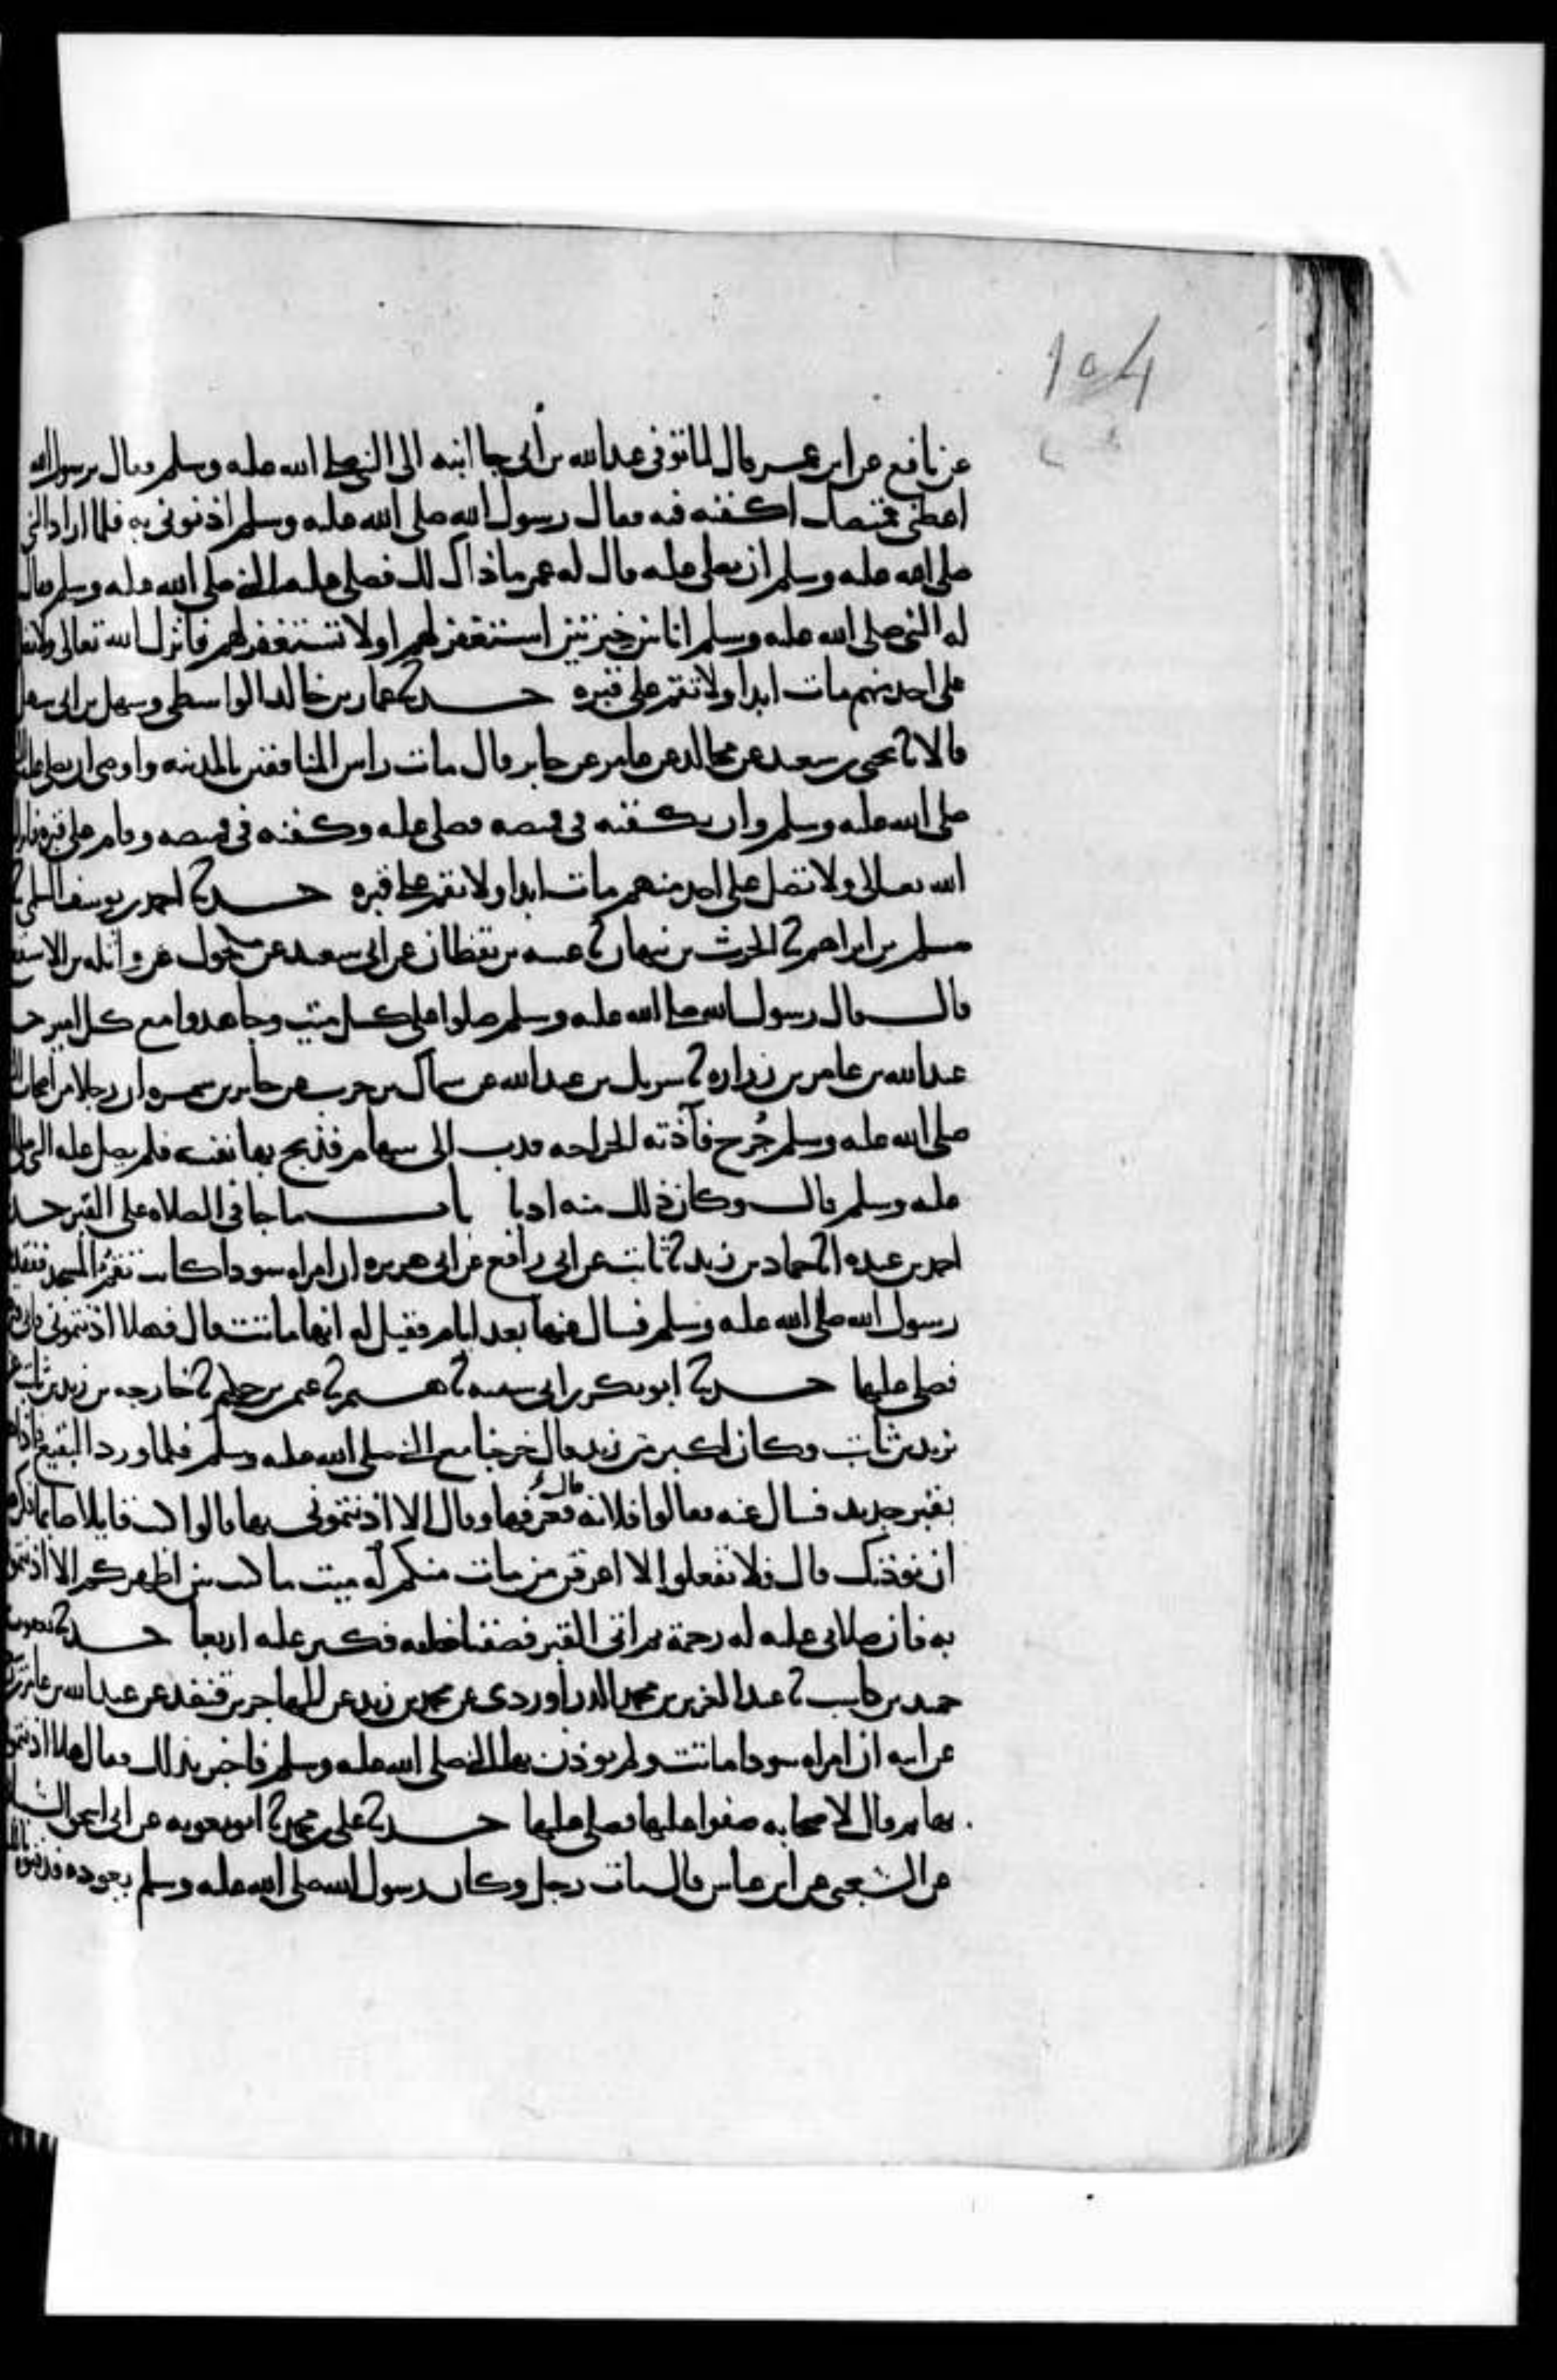 104
عن نافع عن ابن عمر قال لما توفي عبد الله بن أبي جا ابنه الى النبي صلى الله عليه وسلم فقال يرسول الله
اعطني قميصك اكفنه فيه فقال رسول الله صلى الله عليه وسلم اذنوني به فلما اراد النبي
صلى الله عليه وسلم ان يصلي عليه قال له عمر ما ذاك لك فصلى عليه النبي صلى الله عليه وسلم فقال
له النبي صلى الله عليه وسلم انا بين خيرتين استغفر لهم او لا تستغفر لهم فانزل الله تعالى ولا تصل
على احد منهم مات ابدا ولا تقم على قبره حدثنا عمار بن خالد الواسطي وسهل بن ابي سهل
قالا ثنا يحيى بن سعيد عن مجالد عن عامر عن جابر قال مات راس المنافقين بالمدينه واوصى ان يصلي عليه
صلى الله عليه وسلم وان يكفنه في قميصه فصلى عليه وكفنه في قميصه وقام على قبره فانزل
الله تعالى ولا تصل على احد منهم مات ابدا ولا تقم على قبره حدثنا احمد بن يوسف السلمي ثنا
مسلم بن ابراهيم ثنا الحرث بن نبهان ثنا عتبه بن يقظان عن ابي سعيد عن مكحول عن واثله بن الاسقع
قال قال رسول الله صلى الله عليه وسلم صلوا على كل ميت وجاهدوا مع كل امير حد
عبد الله بن عامر بن زراره ثنا شريك بن عبد الله عن سماك بن حرب عن جابر بن سمره ان رجلا من اصحاب
صلى الله عليه وسلم جُرح فآذته الجراحه فدب الى سهام فذبح بها نفسه فلم يصل عليه النبي صلى
عليه وسلم قال وكان ذلك منه ادبا باب ما جا في الصلاه على القبر حد
احمد بن عبده انا حماد بن زيد ثنا ثابت عن ابي رافع عن ابي هريره ان امراه سودا كانت تقمُّ المسجد ففقدها
رسول الله صلى الله عليه وسلم فسال عنها بعد ايام فقيل له انها ماتت قال فهلا اذنتموني فاتى
فصلى عليها حدثنا ابو بكر بن ابي شيبه ثنا هشيم ثنا عثمن بن حكيم ثنا خارجه بن زيد بن ثابت عن
يزيد بن ثابت وكان اكبر من زيد قال خرجنا مع النبي صلى الله عليه وسلم فلما ورد البقيع فاذا هو
بقبر جديد فسال عنه فقالوا فلانه قال فعرفها وقال الا اذنتموني بها قالوا كنت قايلا صايما فكرهنا
ان نوذنك قال فلا تفعلوا لا اعرفن من مات منكم له ميت ما كنت بين اظهركم الا اذنتمو
به فان صلاتي عليه له رحمة ثم اتى القبر فصفنا خلفه فكبر عليه اربعا حدثنا يعقوب
حميد بن كاسب ثنا عبد العزيز بن محمد الدراوردي عن محمد بن زيد عن المهاجر بن قنفد عن عبد الله بن عامر بن
عن ابيه ان امراه سودا ماتت ولم يوذن بها النبي صلى الله عليه وسلم فاخبر بذلك فقال هلا اذنتمو
بها ثم قال لاصحابه صفوا عليها فصلى عليها حدثنا علي بن محمد ثنا ابو معويه عن ابي اسحق الشيبا
عن الشعبي عن ابن عباس قال مات رجل وكان رسول الله صلى الله عليه وسلم يعوده فدفنوه